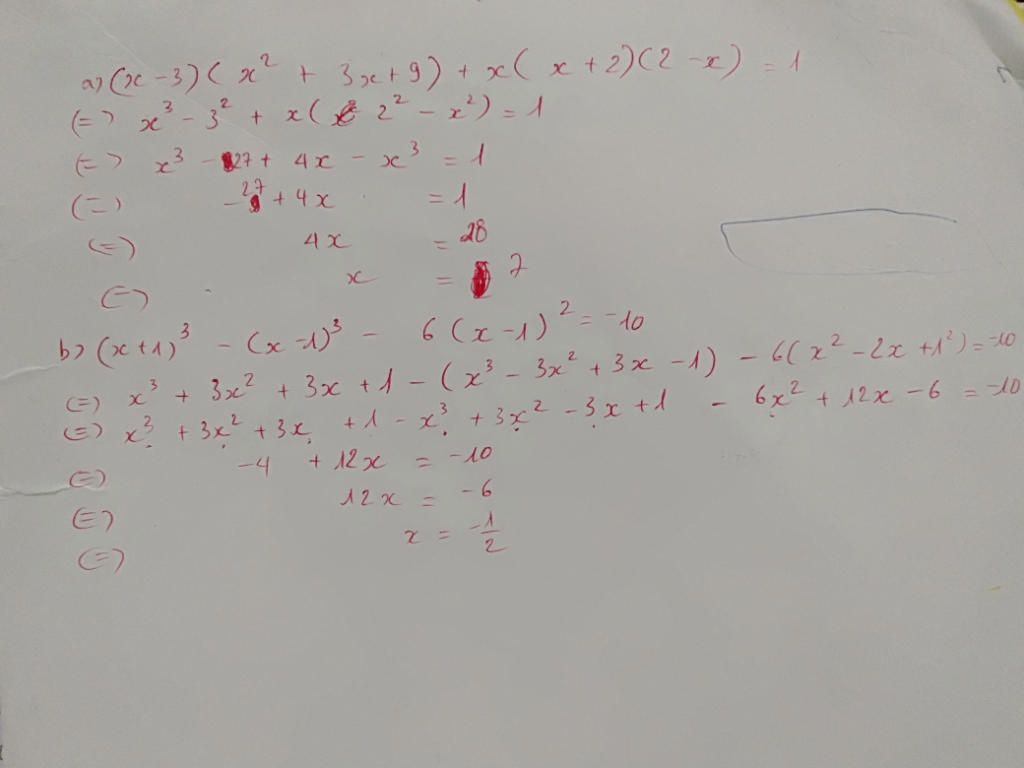 a) (x - 3)( x² + 3x + 9) + x( x + 2)(2 - x) = 1
(=) x³ - 3² + x( 2² - x²) = 1
(=) x³ - 27 + 4x - x³ = 1
(=) -27 + 4x = 1
(=) 4x = 28
(=) x = 7
b) (x+1)³ - (x-1)³ - 6(x-1)² = -10
(=) x³ + 3x² + 3x + 1 - (x³ - 3x² + 3x - 1) - 6(x² - 2x + 1²) = -10
(=) x³ + 3x² + 3x + 1 - x³ + 3x² - 3x + 1 - 6x² + 12x - 6 = -10
(=) -4 + 12x = -10
(=) 12x = -6
(=) x = -1/2